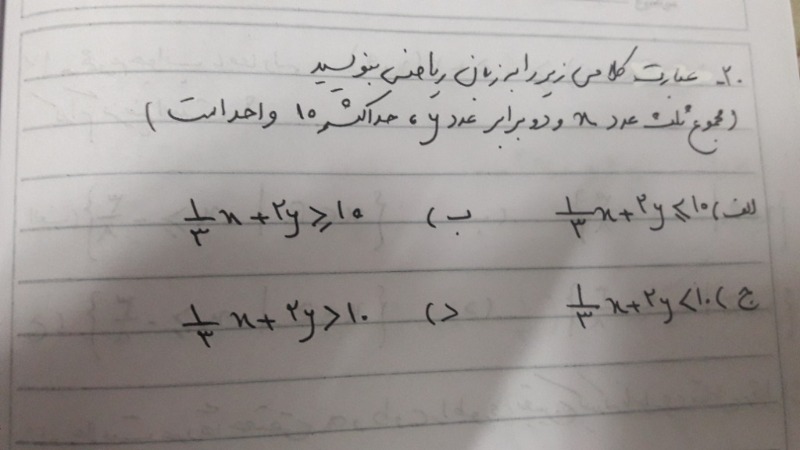 ۲۰- عبارت کلامی زیر را به زبان ریاضی بنویسید
(مجموع ثلث عدد x و دو برابر عدد y، حداکثر ۱۰ واحد است)
الف) ۱/۳ x + ۲y ≤ ۱۰ ب) ۱/۳ x + ۲y ≥ ۱۰
ج) ۱/۳ x + ۲y < ۱۰ د) ۱/۳ x + ۲y > ۱۰